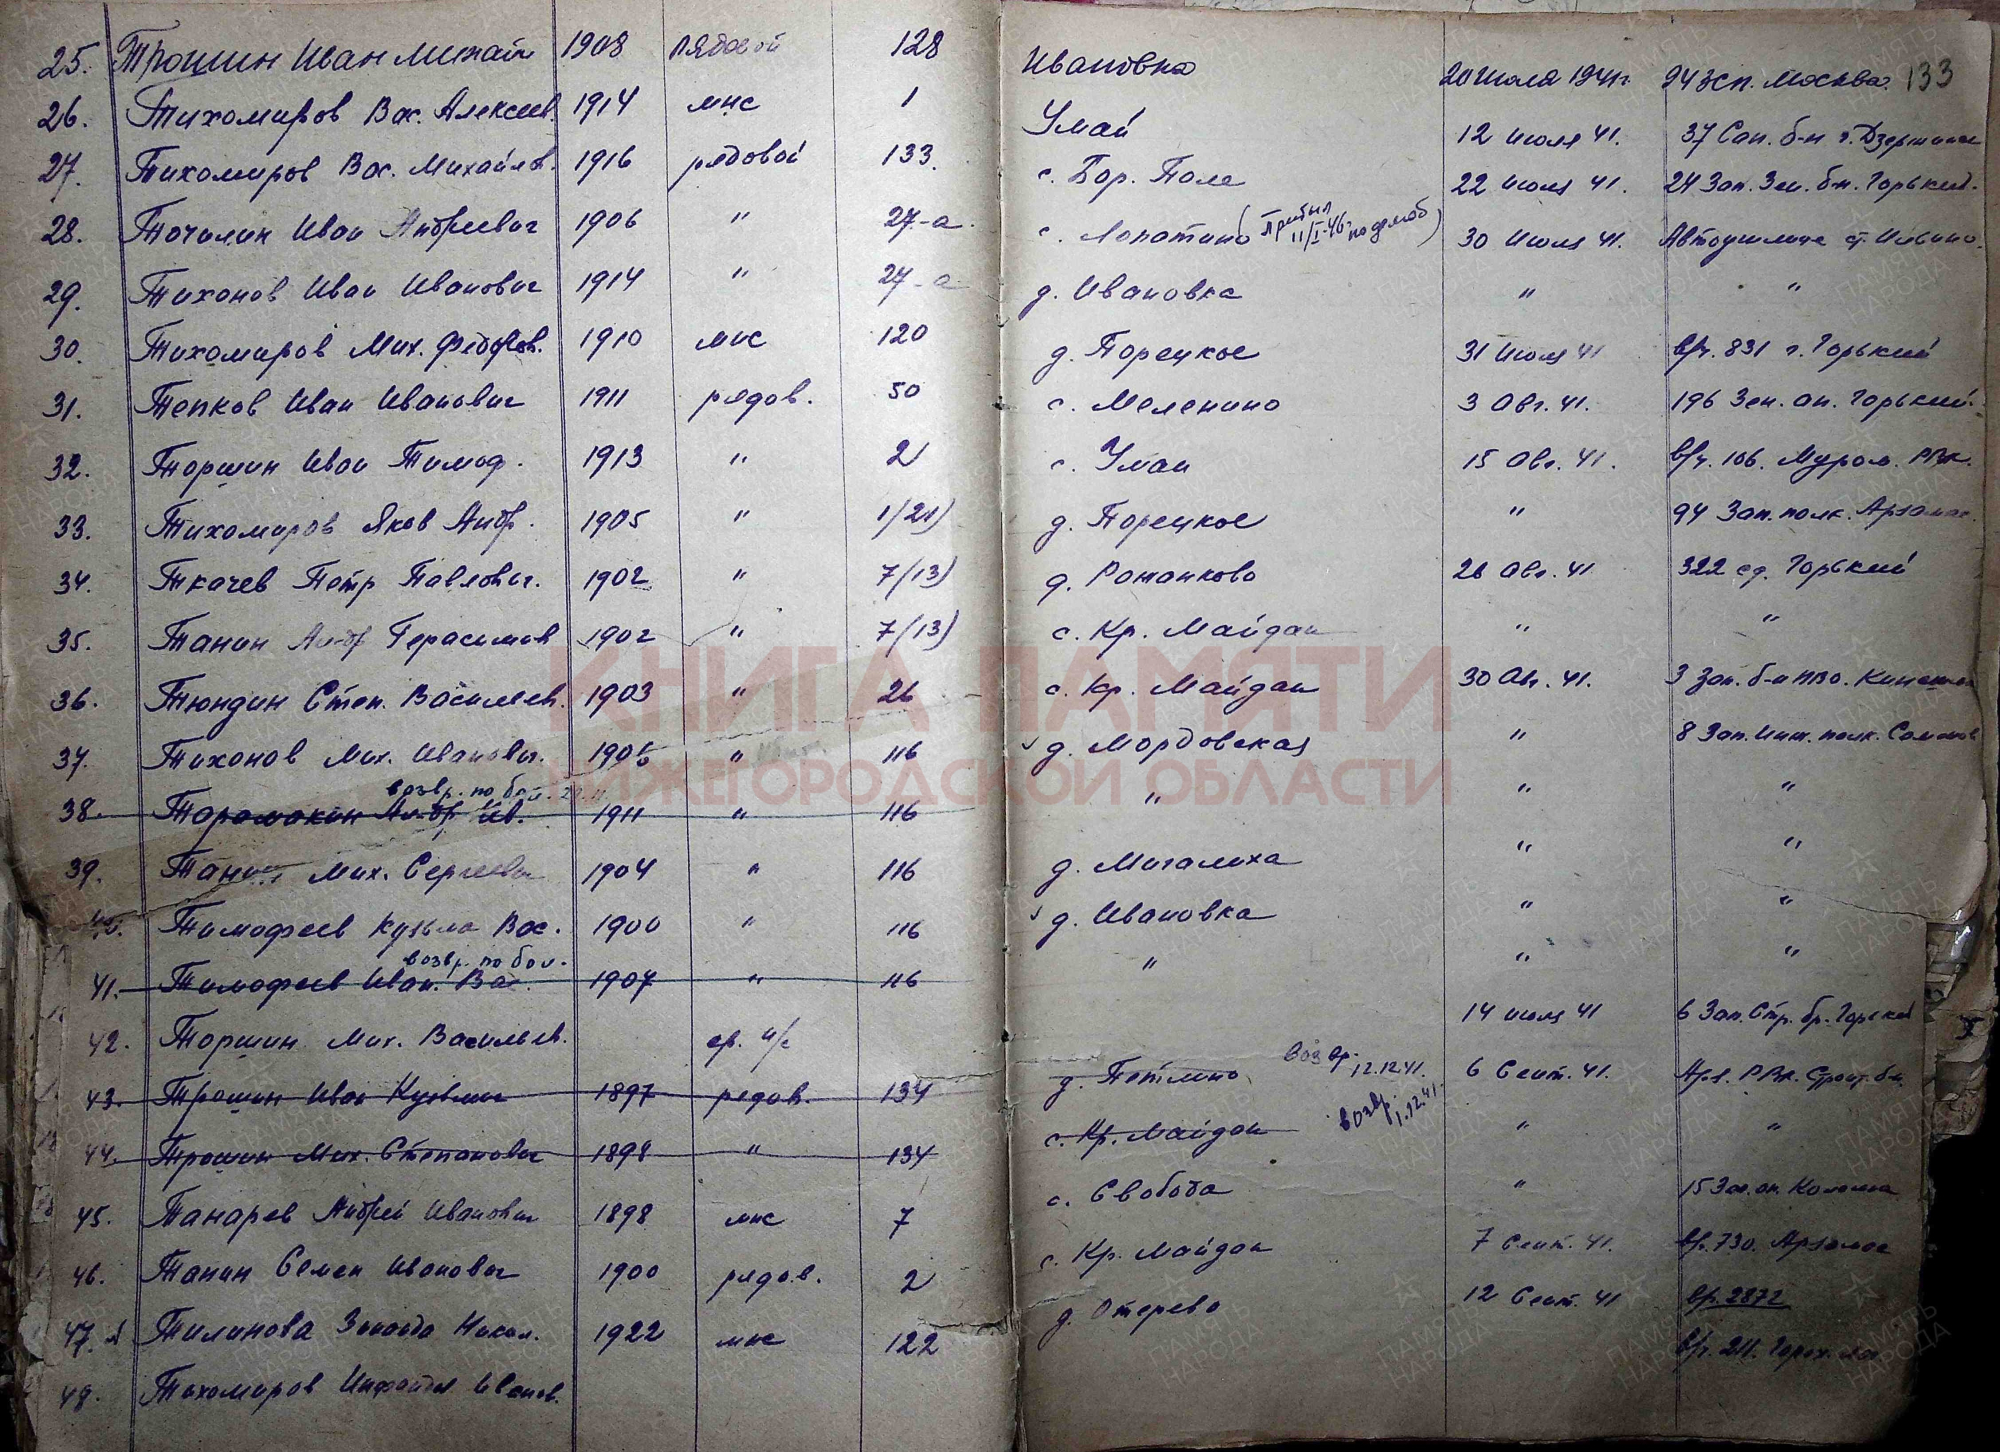 133
25. Трошин Иван Михайл 1908 рядовой 128 Ивановка 20 июля 1941г 94 зсп. Москва.
26. Тихомиров Вас. Алексеев. 1914 мнс 1 Умай 12 июля 41. 37 Сап. б-н г. Дзержинск
27. Тихомиров Вас. Михайлов. 1916 рядовой 133. с. Бор. Поле 22 июля 41. 24 Зап. Зен. б-н. Горький.
28. Точилин Иван Андреевич 1906 " 27-а. с. Лопатино (Прибыл 11/I-46. по демоб) 30 июля 41. Автоучилище ст. Ильино.
29. Тихонов Иван Иванович 1914 " 27-а д. Ивановка " "
30. Тихомиров Мих. Федоров. 1910 мнс 120 д. Порецкое 31 июля 41 в/ч. 831 г. Горький
31. Тепков Иван Иванович 1911 рядов. 50 с. Меленино 3 Авг. 41. 196 Зен. ап. Горький.
32. Торшин Иван Тимоф. 1913 " 2 с. Умай 15 Авг. 41. в/ч. 106. Муром. РВК.
33. Тихомиров Яков Андр. 1905 " 1/21) д. Порецкое " 94 Зап. полк. Арзамас.
34. Ткачев Петр Павлович. 1902 " 7/13) д. Романково 26 Авг. 41 322 сд. Горький
35. Танин Андр Герасимов 1902 " 7/13) с. Кр. Майдан " "
36. Тюндин Степ. Васильев. 1903 " 26 с. Кр. Майдан 30 Авг. 41. 3 Зап. б-н ПВО. Кинешма
37. Тихонов Мих. Иванович. 1905 " 116 д. Мордовская " 8 Зап. Инж. полк.
возвр. по бол.
38. Таромакин Андр Ив. 1911 " 116 " " "
39. Танин Мих. Сергеевич 1904 " 116 д. Мигалиха " "
40. Тимофеев Кузьма Вас. 1900 " 116 д. Ивановка " "
возвр. по бол.
41. Тимофеев Иван. Вас. 1907 " 116 " " "
42. Торшин Мих. Васильев. ср. н/с 14 июля 41 6 Зап. Стр. бр. Горький
43. Трошин Иван Кузьмич 1897 рядов. 134 д. Петлино возвр. 12.12.41. 6 Сент. 41. Арз. РВК. Строит. б-н
44. Трошин Мих. Степанович 1898 " 134 с. Кр. Майдан возвр. 1.12.41. " "
45. Танарев Андрей Иванович 1898 мнс 7 с. Свобода " 15 Зап. ап. Коломна
46. Танин Семен Иванович 1900 рядов. 2 с. Кр. Майдан 7 Сент. 41. в/ч. 730. Арзамас
47. Тилинова Зинаида Никол. 1922 мнс 122 д. Отерево 12 Сент. 41 в/ч. 2872
48. Тихомиров Иванов. в/ч. 211. Горох.
КНИГА ПАМЯТИ
НИЖЕГОРОДСКОЙ ОБЛАСТИ
ПАМЯТЬ НАРОДА